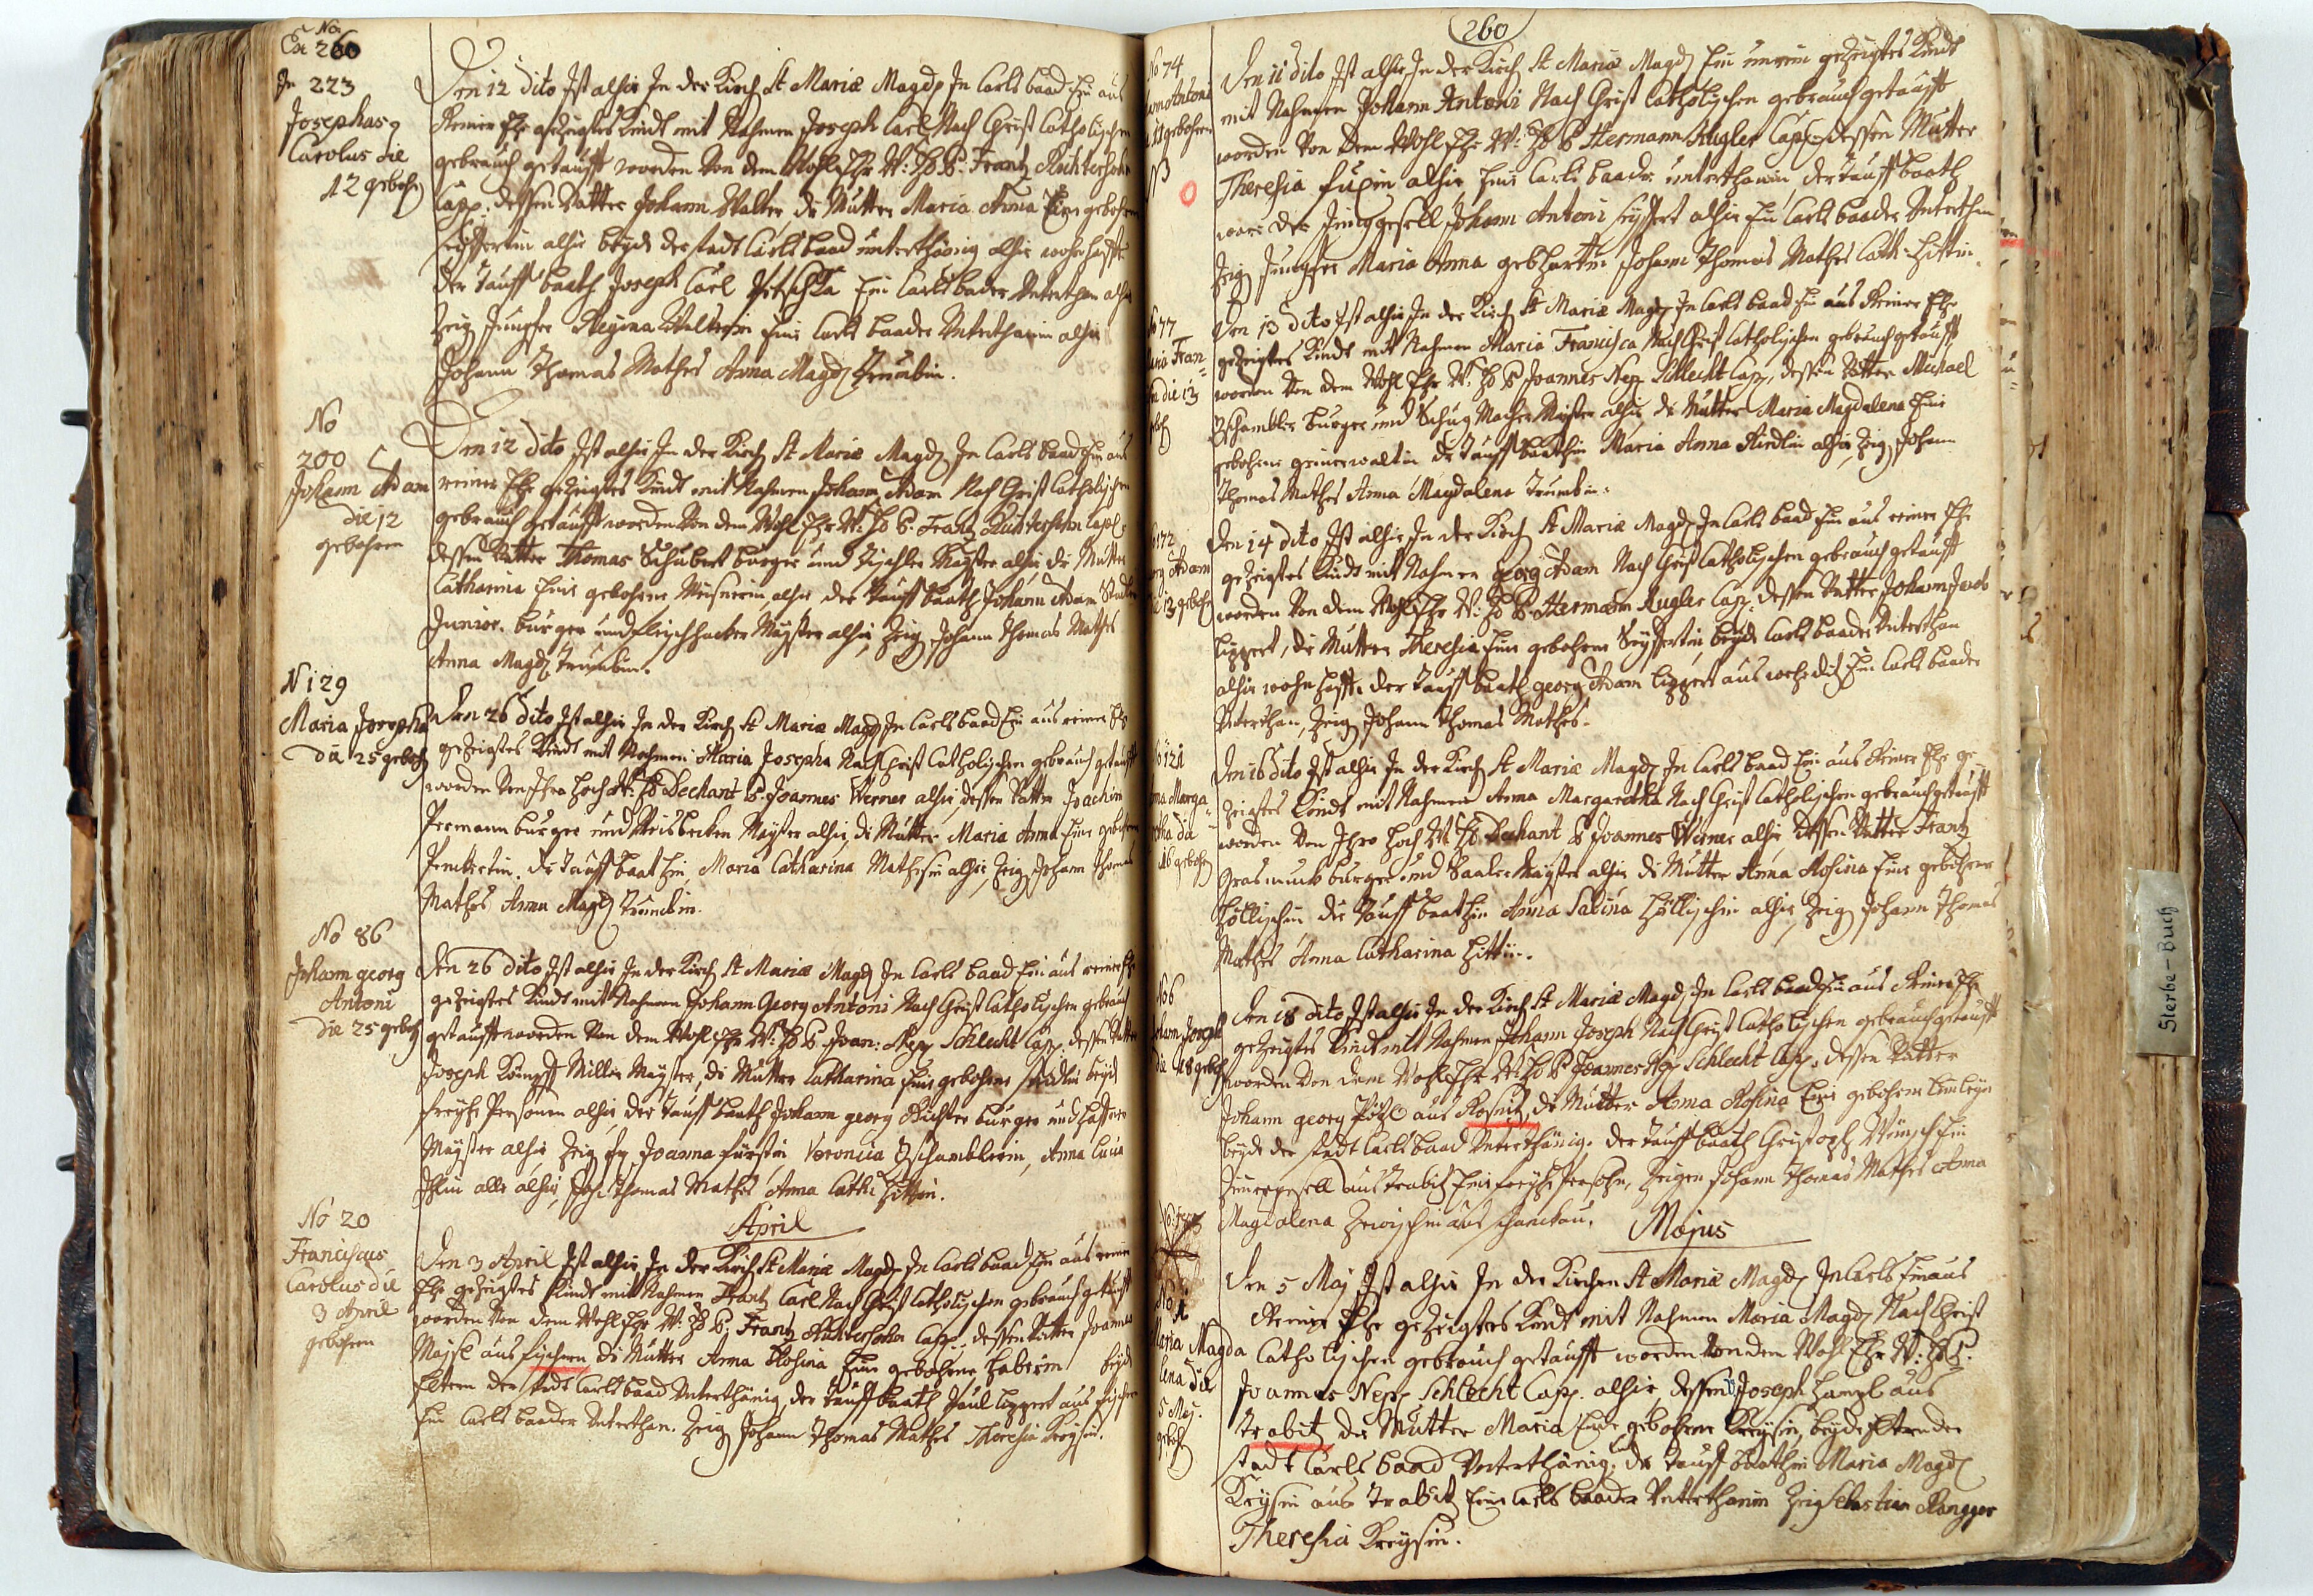 No
Ex 260
In 223
Josephus
Carolus die
12 gebohr
Den 12 dito Ist alhir In der Kirch St Mariæ Magd In Carls baad Ein aus
Reiner Ehe gezeigtes Kindt mit Nahmen Joseph Carl Nach Christ Catholischen
gebrauch getaufft worden Von dem Wohl Ehr W: H P. Frantz
Capp. dessen Vatter Johann Walter di Mutter Maria Anna Eine gebohrne
Seyffertin alhir beyde der stadt Carls baad unterthänig alhir wohnhafft
der Tauff baath Joseph Carl Ein Carls bader Unterthan alhir
Zeig Jungfer Regina Walterin Eine Carls baader Unterthanin alhir
Johann Thomas Mathes Anna Magd Trumbin.
No
200
Johann Adam
die 12
gebohren
Den 12 dito Ist alhir In der Kirch St Mariæ Magd In Carls baad Ein aus
reiner Ehe gezeigtes Kindt mit Nahmen Johann Adam Nach Christ Catholischen
gebrauch getaufft worden Von dem Wohl Ehr W: H P. Frantz Capl:
dessen Vatter Thomas Schubert burger und Tischler Mayster alhir di Mutter
Catharina Eine gebohrne Meisnerin, alhir der Tauff baath Johann Adam
Junior. burger und fleischhacker Mayster alhir, Zeig Johann Thomas Mathes
Anna Magd Trumbin.
N 129
Maria Josepha
die 25 gebohr
Den 26 dito Ist alhir In der Kirch St Mariæ Magd In Carls baad Ein aus reiner Ehe
gezeigtes Kindt mit Nahmen Maria Josepha Nach Christ Catholischen gebrauch getaufft
worden Von Ihro Hoch W: H Dechant P. Joannes Werner alhir, dessen Vatter Joachim
burger und Mayster alhir, di Mutter Maria Anna Eine gebohrne
di Tauff baathin Maria Catharina Mathesin alhir, Zeig Johann Thomas
Mathes Anna Magd Trumbin.
No 86
Johann georg
Antoni
die 25 gebohr
Den 26 dito Ist alhir In der Kirch St Mariæ Magd In Carls baad Ein aus reiner Ehe
gezeigtes Kindt mit Nahmen Johann Georg Antoni Nach Christ Catholischen gebrauch
getaufft worden Von dem Wohl Ehr W: H P. Joan: Nep Schlecht Capp. dessen Vatter
Joseph Miller Mayster, di Mutter Catharina Eine gebohrne beyde
freyhe Personen alhir, der Tauff baath Johann georg Richter burger und
Mayster alhir Zeig Joanna fürstin Veronica Zschamblerin, Anna
alle alhir, Joh: Thomas Mathes Anna Cath: Hittin.
April
No 20
Franciscus
Carolus die
3 April
gebohren
Den 3 April Ist alhir In der Kirch St Mariæ Magd In Carls baad Ein aus reiner
Ehe gezeigtes Kindt mit Nahmen Frantz Carl Nach Christ Catholischen gebrauch getaufft
worden Von dem Wohl Ehr W: H P. Frantz Capp. dessen Vatter Joannes
aus fischern di Mutter Anna Rosina Eine gebohrne Haberin beyde
Eltern der stadt Carls baad Unterthänig, der Tauff baath Paul Lippert aus fischern
Ein Carls baader Unterthan. Zeig Johann Thomas Mathes Theresia Kreysin.
260
No 74
Antoni
11 gebohren
N3
Den 11 dito Ist alhir In der Kirch St Mariæ Magd Ein unrein gezeigtes Kindt
mit Nahmen Johann Antoni Nach Christ Catholischen gebrauch getaufft
worden Von dem Wohl Ehr W: H P Hermann Kugler Capp dessen Mutter
Theresia fuxin alhir Eine Carls baader unterthanin der Tauff baath
ware der Junggesell Johann Antoni Seyffert alhir Ein Carls baader Unterthan
Zeig Jungfer Maria Anna gebhartin Johann Thomas Mathes Cath: Hittin.
No 77
Maria Fran=
die 13
Den 13 dito Ist alhir In der Kirch St Mariæ Magd In Carls baad Ein aus Reiner Ehe
gezeigtes Kindt mit Nahmen Maria Francisca Nach Christ Catholischen gebrauch getaufft
worden Von dem Wohl Ehr W: H P Joannes Nep Schlecht Capp, dessen Vatter Michael
Zschambler burger und Schug Macher Mayster alhir, di Mutter Maria Magdalena Eine
gebohrne grinerwaltin di Tauff baathin Maria Anna alhir, Zeig Johann
Thomas Mathes Anna Magdalena Trumbin.
172
Adam
13 gebohr
Den 14 dito Ist alhir In der Kirch St Mariæ Magd In Carls baad Ein aus reiner Ehe
gezeigtes Kindt mit Nahmen georg Adam Nach Christ Catholischen gebrauch getaufft
worden Von dem Wohl Ehr W: H P. Hermann Kugler Capp. dessen Vatter Johann Jacob
Lippert, di Mutter Theresia Eine gebohrne Seyffertin, beyde Carls baader Unterthan
alhir wohnhafft. der Tauff baath georg Adam Lippert aus Ein Carls baader
Unterthan, Zeig Johann Thomas Mathes.
No 121
Anna Marga=
retha die
16 gebohr
Den 16 dito Ist alhir In der Kirch St Mariæ Magd In Carls baad Ein aus Reiner Ehe ge=
zeigtes Kindt mit Nahmen Anna Margaretha Nach Christ Catholischen gebrauch getaufft
worden Von Ihro Hoch W: H Dechant P Joannes Werner alhir, dessen Vatter Frantz
Grasmuck burger und Mayster alhir di Mutter Anna Rosina Eine gebohrne
Höllischin die Tauff baathin Anna Sabina Höllischin alhir, Zeig Johann Thomas
Mathes Anna Catharina Hittin.
No 6
Johann Joseph
die 18 gebohr
Den 18 dito Ist alhir In der Kirch St Mariæ Magd In Carls baad Ein aus Reiner Ehe
gezeigtes Kindt mit Nahmen Johann Joseph Nach Christ Catholischen gebrauch getaufft
worden Von dem Wohl Ehr W: H P Joannes Nep Schlecht Capp. dessen Vatter
Johann georg aus Rosnitz, di Mutter Anna Rosina Eine gebohrne
beyde der stadt Carls baad Unterthänig. der Tauff baath Christoph Ein
Junggesell aus Trabitz Eine freyhe Persohn, Zeigen Johann Thomas Mathes Anna
Magdalena aus
Majus
Maria Magda
lena die
5 Maj.
gebohr
Den 5 Maj Ist alhir In der Kirchen St Mariæ Magd In Carls Ein aus
Reiner Ehe gezeigtes Kindt mit Nahmen Maria Magd Nach Christ
Catholischen gebrauch getaufft worden Von dem Wohl Ehr W: H P.
Joannes Nep Schlecht Capp. alhir, dessen Joseph aus
Trabitz die Mutter Maria Eine gebohrne Kreysin, beyde Eltern der
stadt Carls baad Unterthänig. die Tauff baathin Maria Magd
Kreysin aus Trabitz Eine Carls baader Unterthanin Zeig Sebastian
Theresia Kreysin.
Sterbe-Buch